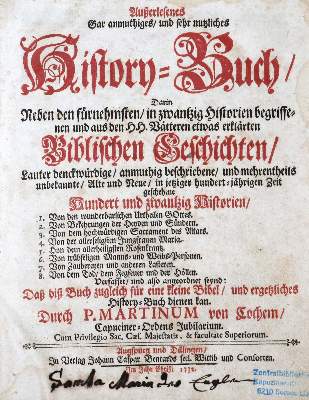 Außerlesenes
Gar anmuthiges/ und sehr nutzliches
History-Buch/
Darin
Neben den fürnehmsten/ in zwantzig Historien begriffe-
nen und aus den HH. Vätteren etwas erklärten
Biblischen Geschichten/
Lauter denckwürdige/ anmuthig beschriebene/ und mehrentheils
unbekannte/ Alte und Neue/ in jetziger hundert-jährigen Zeit
geschehene
Hundert und zwantzig Historien/
1. Von den wunderbarlichen Urthalen GOttes.
2. Von Bekehrungen der Heyden und Sünderen.
3. Von dem hochwürdigen Sacrament des Altars.
4. Von der allerseligsten Jungfrauen Maria.
5. Von dem allerheiligsten Rosenkrantz.
6. Von trübseeligen Manns- und Weibs-Personen.
7. Von Zauberayen und anderen Lasteren.
8. Von dem Todt/ dem Fegfeuer und der Höllen.
Verfasset/ und also angeordnet seynd:
Daß diß Buch zugleich für eine kleine Bibel/ und ergetzliches
History-Buch dienen kan.
Durch P. MARTINUM von Cochem/
Capuciner-Ordens Jubilarium.
Cum Privilegio Sac. Cæs. Majestatis, & facultate Superiorum.
Augspurg und Dillingen/
In Verlag Johann Caspar Bencards seel. Wittib und Consorten.
Im Jahr Christi 1732.
Maria
Zentralbibliothek
Kapuziner
6210 Sursee LU